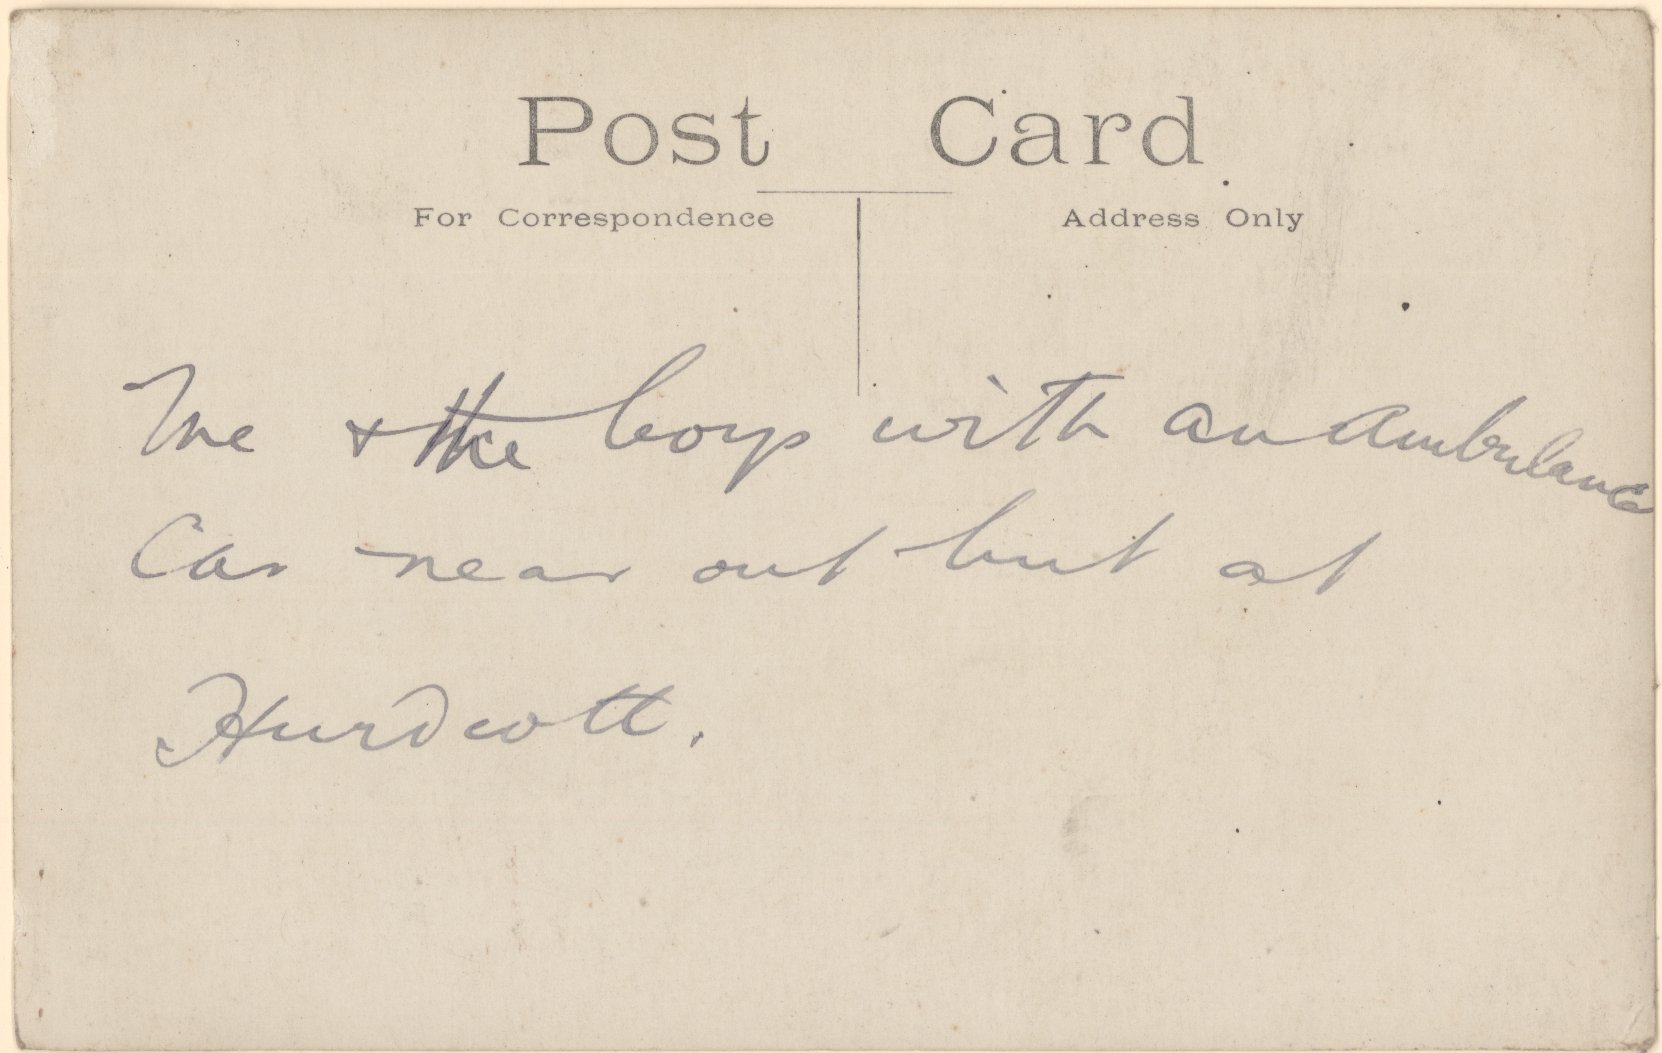 Post Card
For Correspondence
Address Only
Me & the boys with an Ambulance
Car near out hut at
Hurdcott.